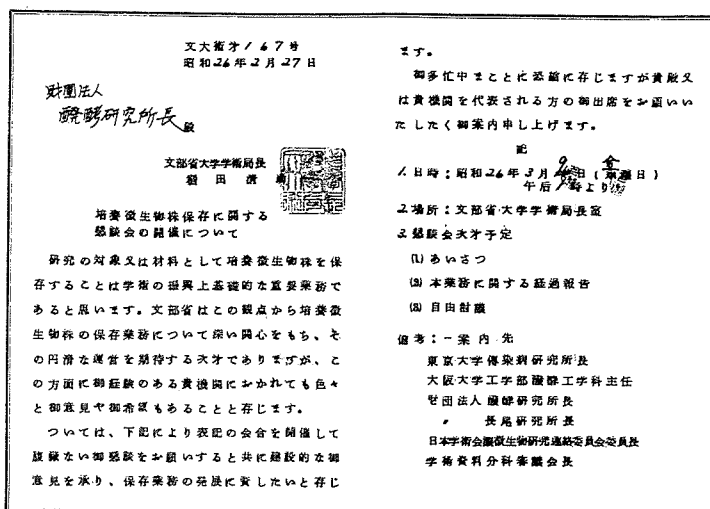 文大術才167号
昭和26年2月27日
財團法人
醗酵研究所長殿
文部省大学学術局長
稲田清
培養微生物株保存に関する
懇談会の開催について
研究の対象又は材料として培養微生物株を保
存することは学術の振興上基礎的な重要業務で
あると思います。文部省はこの観点から培養微
生物株の保存業務について深い関心をもち、そ
の円滑な運営を期待する次才でありますが、こ
の方面に御経験のある貴機関におかれても色々
と御意見や御希望もあることと存じます。
ついては、下記により表記の会合を開催して
腹蔵ない御懇談をお願いすると共に建設的な御
意見を承り、保存業務の発展に資したいと存じ
ます。
御多忙中まことに恐縮に存じますが貴殿又
は貴機関を代表される方の御出席をお願いい
たしたく御案内申し上げます。
記
1.日時:昭和26年3月9日(金曜日)
午后 時より
2.場所:文部省大学学術局長室
3.懇談会次才予定
(1)あいさつ
(2)本業務に関する経過報告
(3)自由討議
備考:一案内先
東京大学傳染病研究所長
大阪大学工学部醗酵工学科主任
財団法人醗酵研究所長
〃 長尾研究所長
日本学術会議微生物研究連絡委員会委員長
学術資料分科審議会長